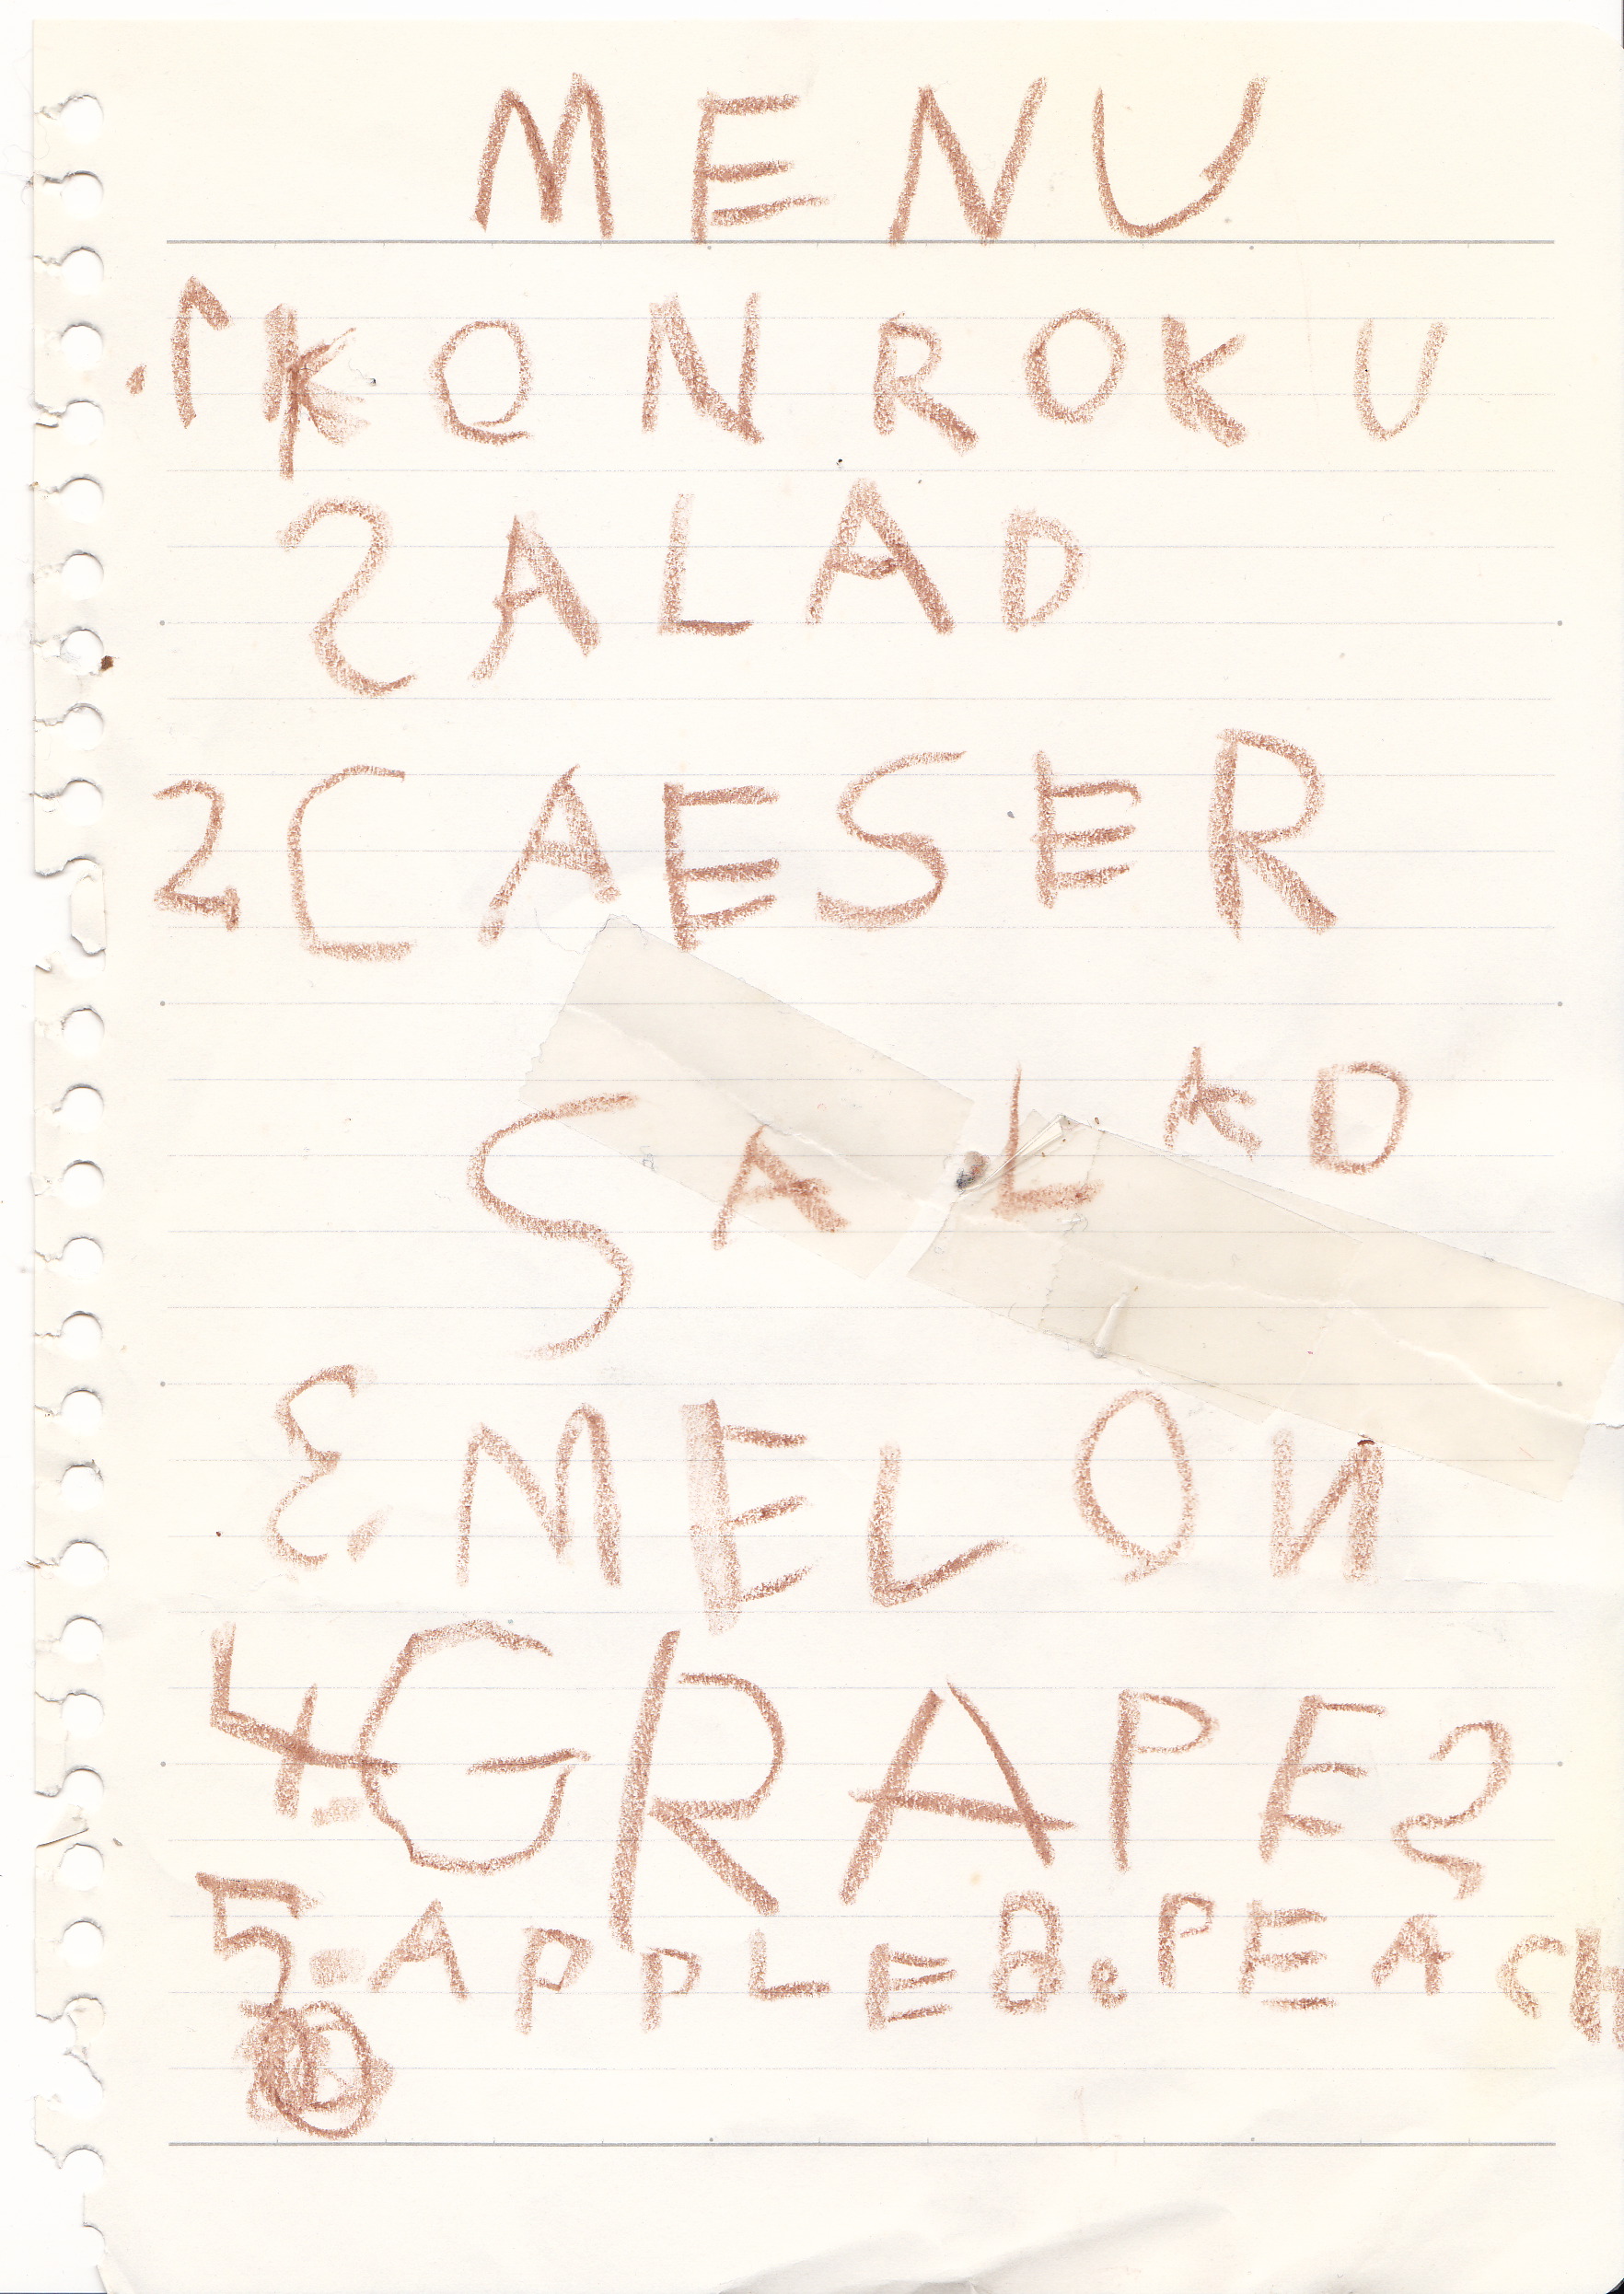 MENU
1. KONROKU
SALAD
2 CAESER
SALAD
3. MELON
4. GRAPES
5. APPLE & PEACH